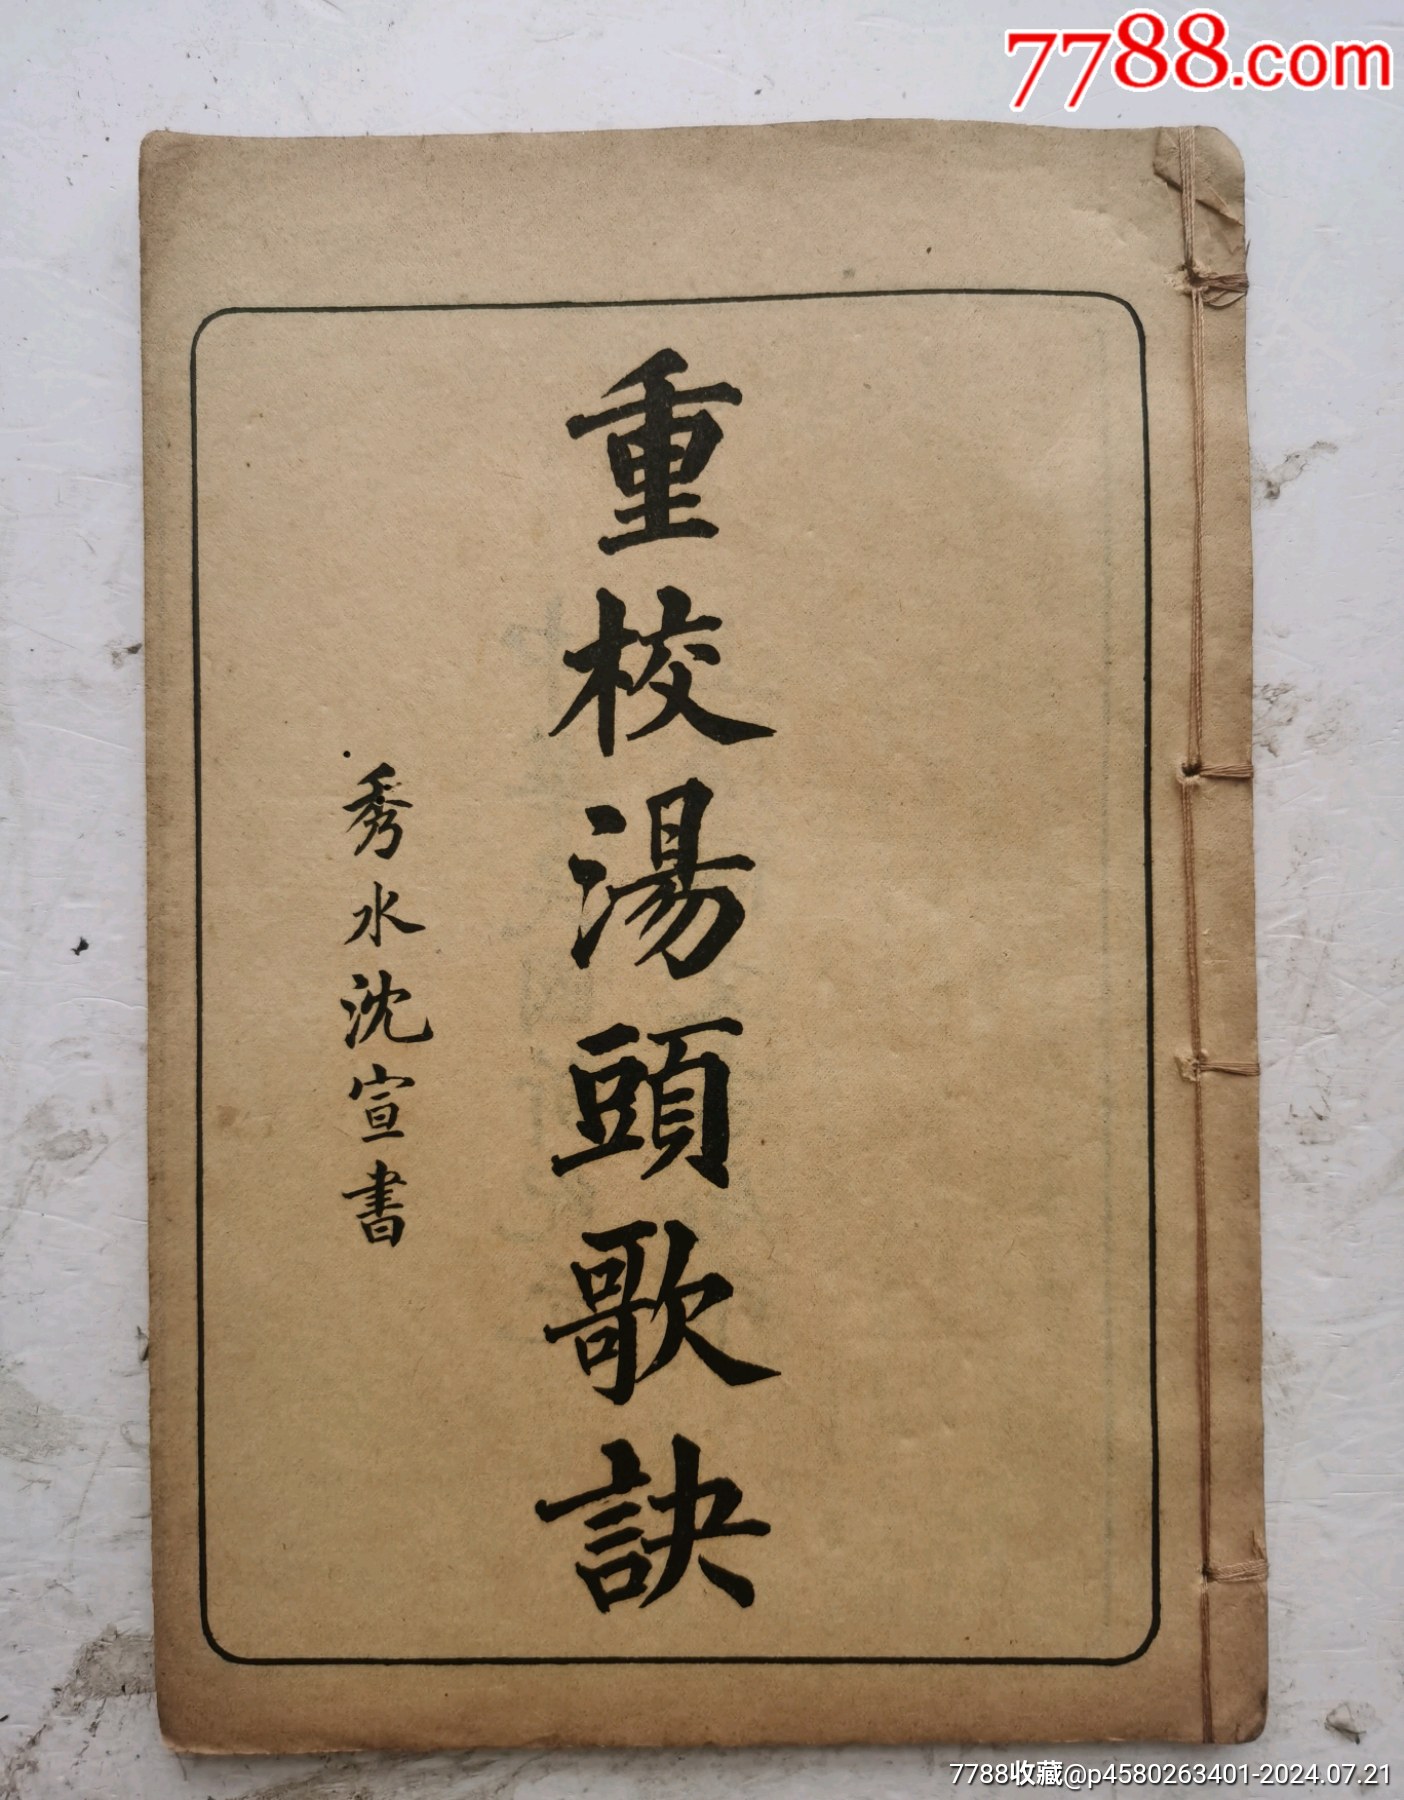 7788.com
重校湯頭歌訣
秀水沈宣書
7788收藏@p4580263401-2024.07.21